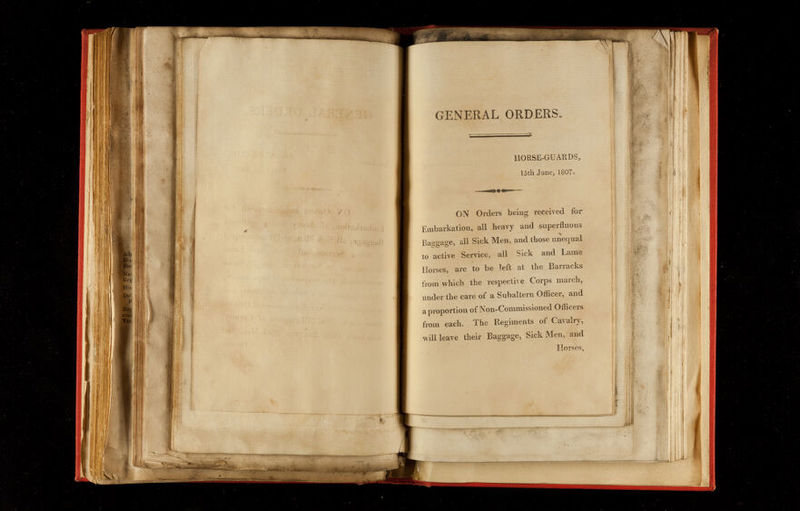 GENERAL ORDERS.
HORSE-GUARDS,
15th June, 1807.
ON Orders being received for
Embarkation, all heavy and superfluous
Baggage, all Sick Men, and those unequal
to active Service, all Sick and Lame
Horses, are to be left at the Barracks
from which the respective Corps march,
under the care of a Subaltern Officer, and
a proportion of Non-Commissioned Officers
from each. The Regiments of Cavalry,
will leave their Baggage, Sick Men, and
Horses,